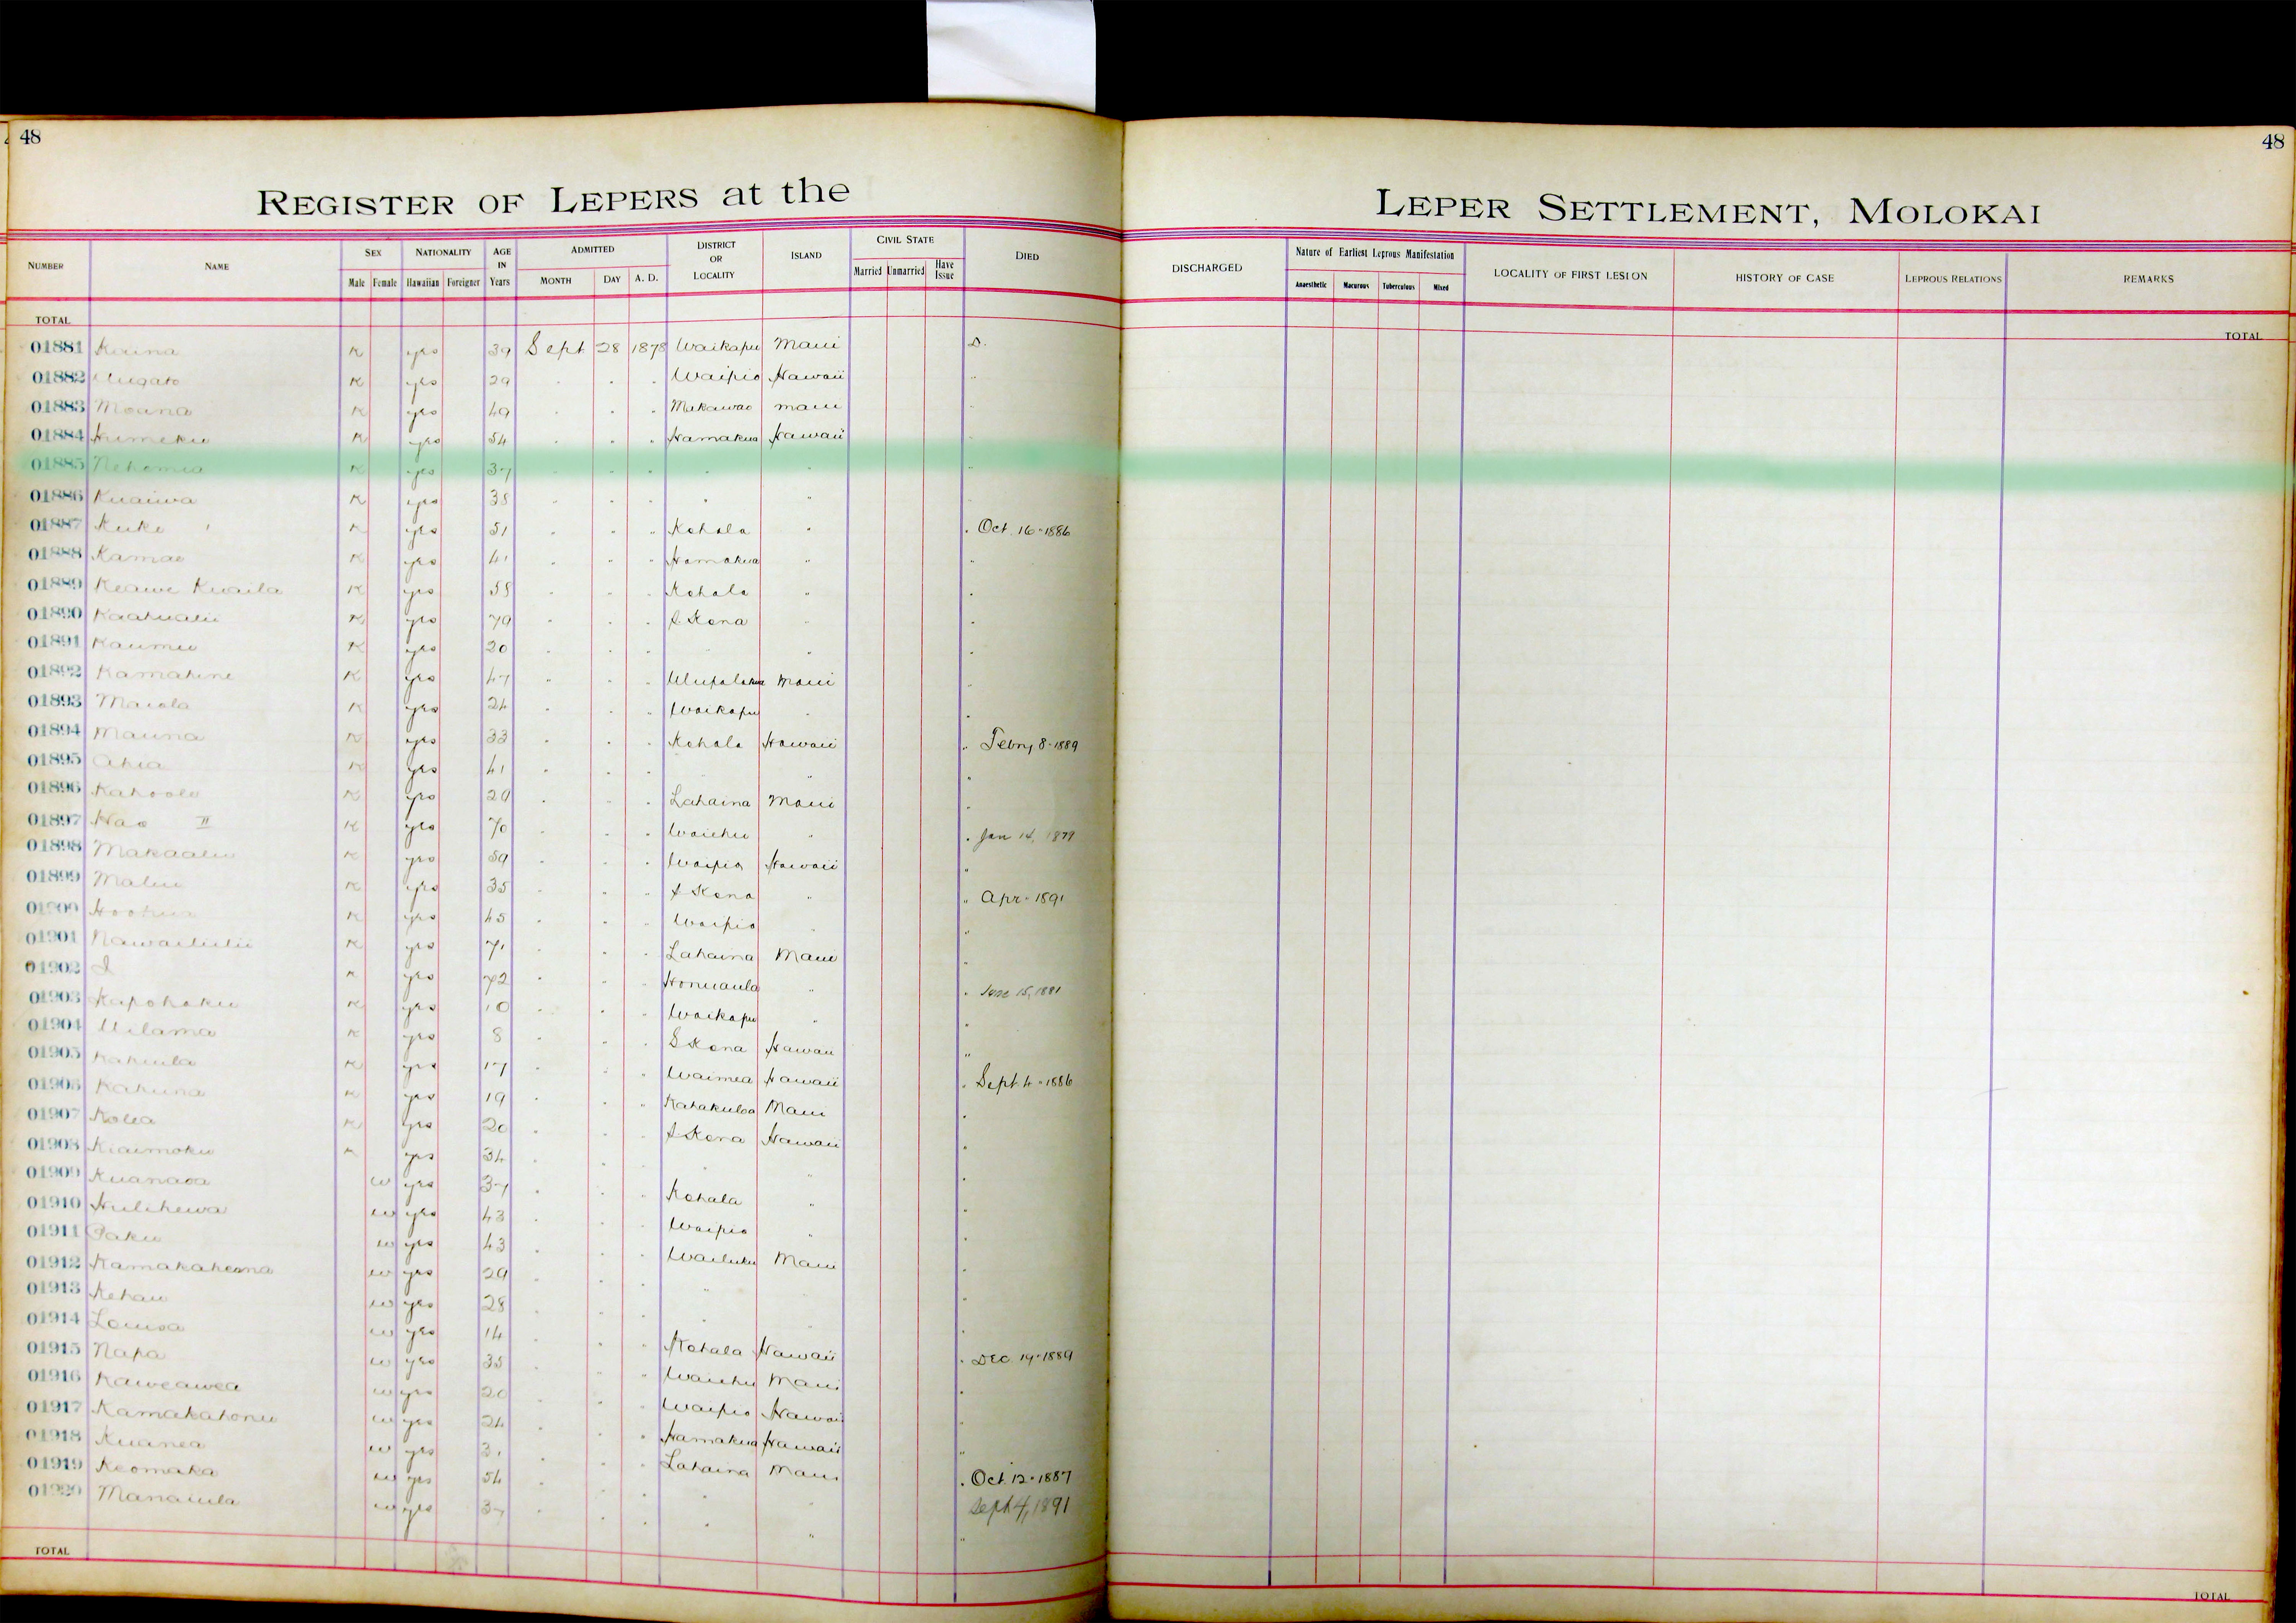 48
48
REGISTER OF LEPERS at the
LEPER SETTLEMENT, MOLOKAI
NUMBER NAME SEX Male Female NATIONALITY Hawaiian Foreigner AGE IN Years ADMITTED MONTH DAY A. D. DISTRICT OR LOCALITY ISLAND CIVIL STATE Married Unmarried Have Issue DIED
DISCHARGED Nature of Earliest Leprous Manifestation Anaesthetic Macurous Tuberculous Mixed LOCALITY OF FIRST LESION HISTORY OF CASE LEPROUS RELATIONS REMARKS
TOTAL
TOTAL
01881 K yes 39 Sept 28 1878 Waikapu Maui D.
01882 K yes 29 Waipio Hawaii
01883 Moana K yes 49 Makawao Maui
01884 Humeku K yes 54 Hamakua Hawaii
01885 Nehemia K yes 37
01886 Kuaiwa K yes 38
01887 Kuke K yes 51 Kohala " Oct. 16-1886
01888 Kamao K yes 41 Hamakua "
01889 Keawe Kuaila K yes 58 Kohala "
01890 Kaahualii K yes 79 S Kona
01891 Kaumu K yes 20
01892 Kamahine K yes 47 Ulupalakua Maui
01893 Maiola K yes 24 Waikapu
01894 Mauna K yes 33 Kohala Hawaii " Febry 8-1889
01895 Ahia K yes 41
01896 Kahoolu K yes 29 Lahaina Maui
01897 Hao II K yes 70 Waiehu " Jan 14, 1879
01898 Makaalu K yes 59 Waipio Hawaii
01899 Malu K yes 35 S Kona " Apr-1891
01900 K yes 45 Waipio
01901 Nawailulii K yes 71 Lahaina Maui
01902 I K yes 72 Honuaula " June 15, 1881
01903 Kapohaku K yes 10 Waikapu
01904 Uilama K yes 8 S Kona Hawaii
01905 Kahiula K yes 17 Waimea Hawaii " Sept. 4-1886
01906 Kahuna K yes 19 Kahakuloa Maui
01907 Kolea K yes 20 S Kona Hawaii
01908 Kiaimoku K yes 34
01909 Kuanaoa w yes 37 Kohala "
01910 Hulihewa w yes 43 Waipio
01911 Paku w yes 43 Wailuku Maui
01912 Kamakaheana w yes 29
01913 Kehau w yes 28
01914 Louisa w yes 14 Kohala Hawaii " Dec. 19-1889
01915 Napa w yes 35 Waiehu Maui
01916 Kaweawea w yes 20 Waipio Hawaii
01917 Kamakahonu w yes 24 Hamakua Hawaii
01918 Kuanea w yes 31 Lahaina Maui " Oct 12-1887
01919 Keomaka w yes 54 Sept 4, 1891
01920 Manaiula w yes 37
TOTAL
TOTAL